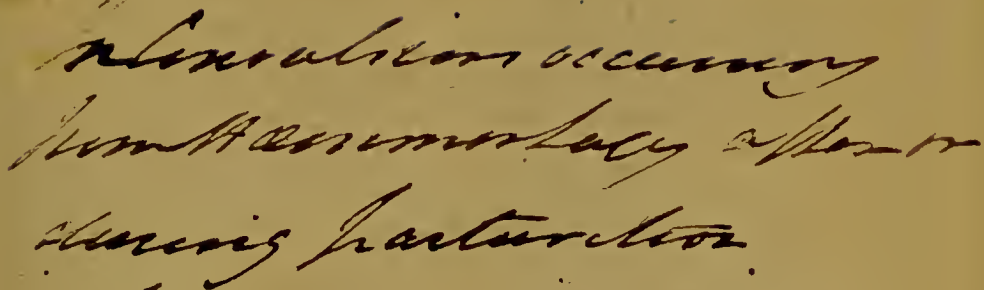 n Convulsions occurring
from Hæmmorhagy after or
during parturition.